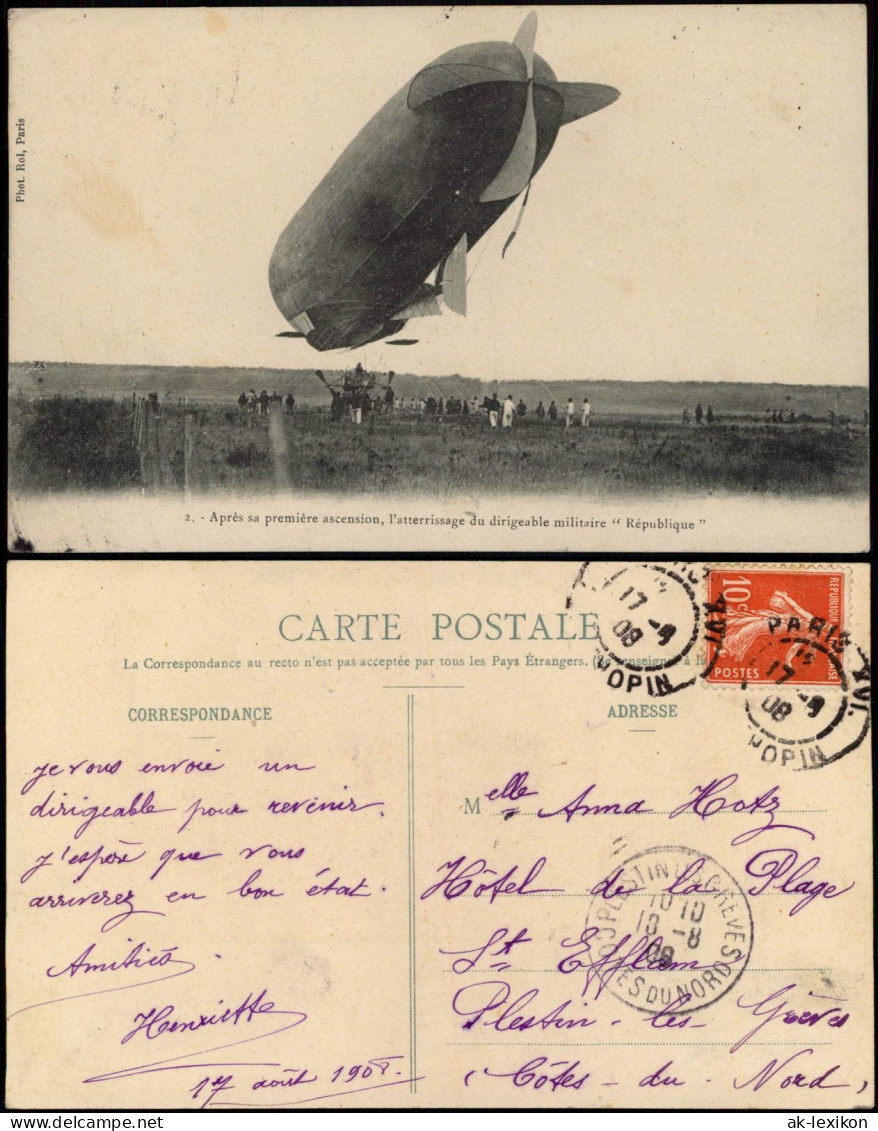 Phot. Rol, Paris
2. - Après sa première ascension, l'atterrissage du dirigeable militaire " République "
CARTE POSTALE
La Correspondance au recto n'est pas acceptée par tous les Pays Étrangers.
CORRESPONDANCE
ADRESSE
10c
REPUBLIQUE
POSTES
PARIS
XVI.
17 -8
08
POPIN
17 -8
08
POPIN
XVI
Je vous envoie un
dirigeable pour revenir.
J'espère que vous
arriverez en bon état.
Amitiés.
Henriette
17 août 1908.
Melle Anna Hotz
Hôtel de la Plage
St Efflam
Plestin-les-Grèves
(Côtes-du-Nord)
PLESTIN LES GREVES
18 -8
08
CÔTES DU NORD
ak-lexikon
© DELCAMPE